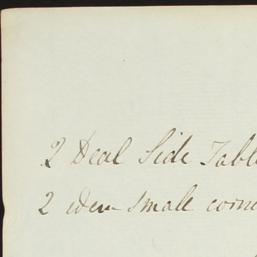 2 Deal Side Tabl
2 idem small corne